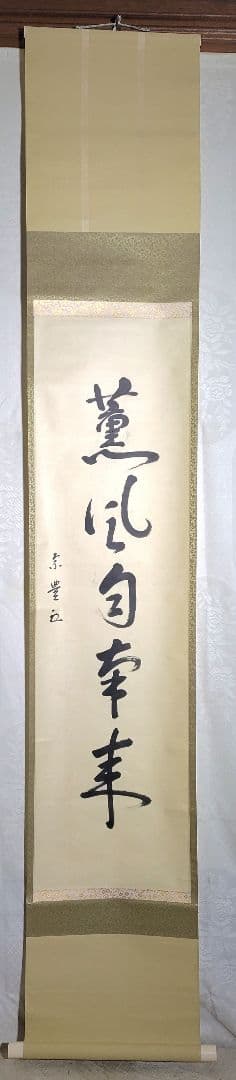 薫風自南来
宗豊